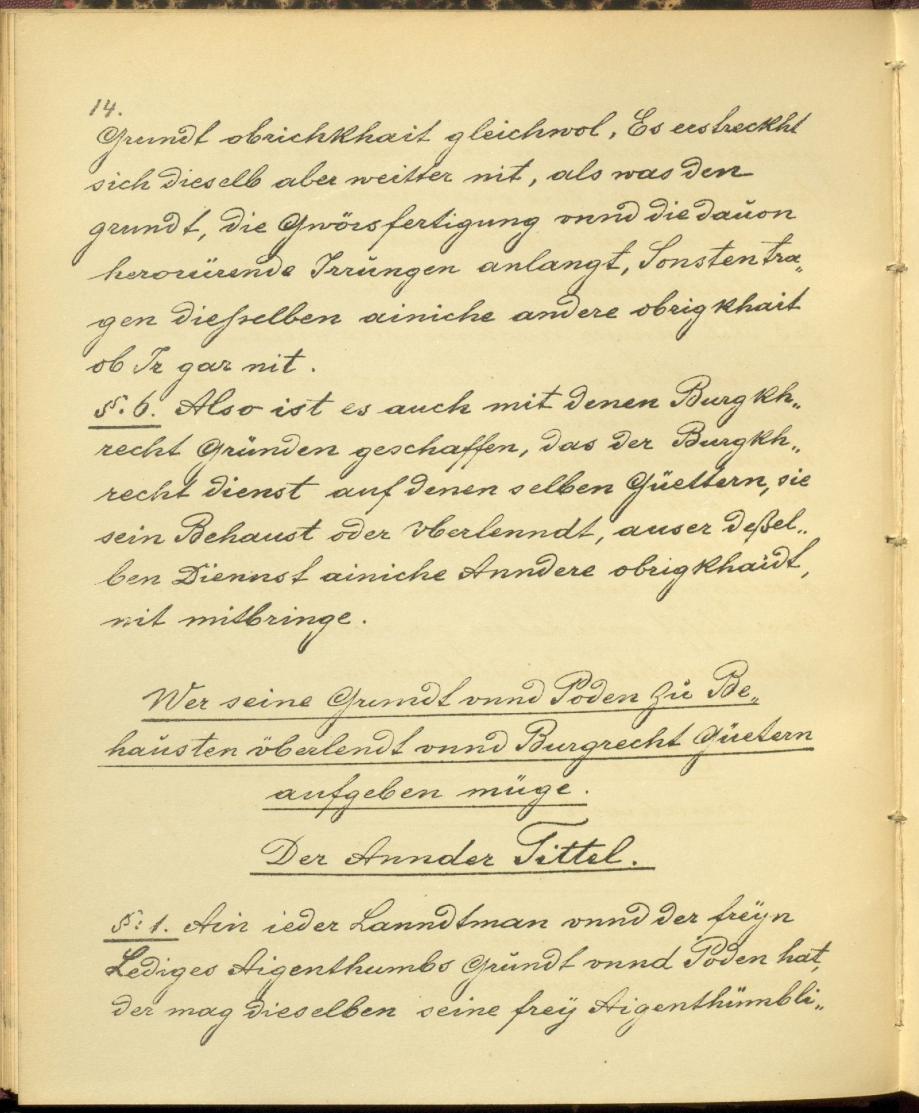 14.
Grundt obrichkhait gleichwol, Es erstreckht
sich dieselb aber weitter nit, als was den
grundt, die Gwörsfertigung vnnd die dauon
herorürende Irrungen anlangt, Sonsten tra„
gen dießelben ainiche andere obrigkhait
ob Ir gar nit.
§. 6. Also ist es auch mit denen Burgkh„
recht Gründen geschaffen, das der Burgkh„
recht dienst auf denen selben Güettern, sie
sein Behaust oder Vberlenndt, auser deßel„
ben Diennst ainiche Anndere obrigkhaidt,
nit mitbringe.
Wer seine Grundt vnnd Poden zu Be„
hausten überlendt vnnd Burgrecht Güetern
aufgeben müge.
Der Annder Tittel.
§: 1. Ain ieder Lanndtman vnnd der freÿn
Lediges Aigenthumbs Grundt vnnd Poden hat,
der mag dieselben seine freÿ Aigenthümbli„